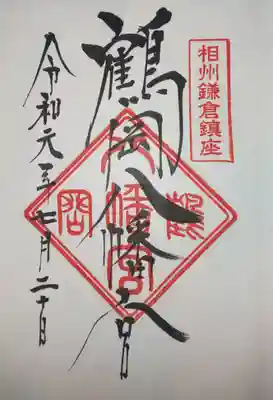 相州鎌倉鎮座
鶴岡八幡宮
令和元年七月二十日
鶴
八幡宮
岡